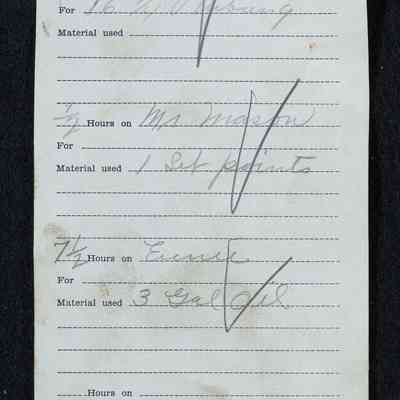 For 16
Material used
1/2 Hours on Mr Mason
For
Material used 1 Set points
7 1/2 Hours on
For
Material used 3 Gal Oil
Hours on